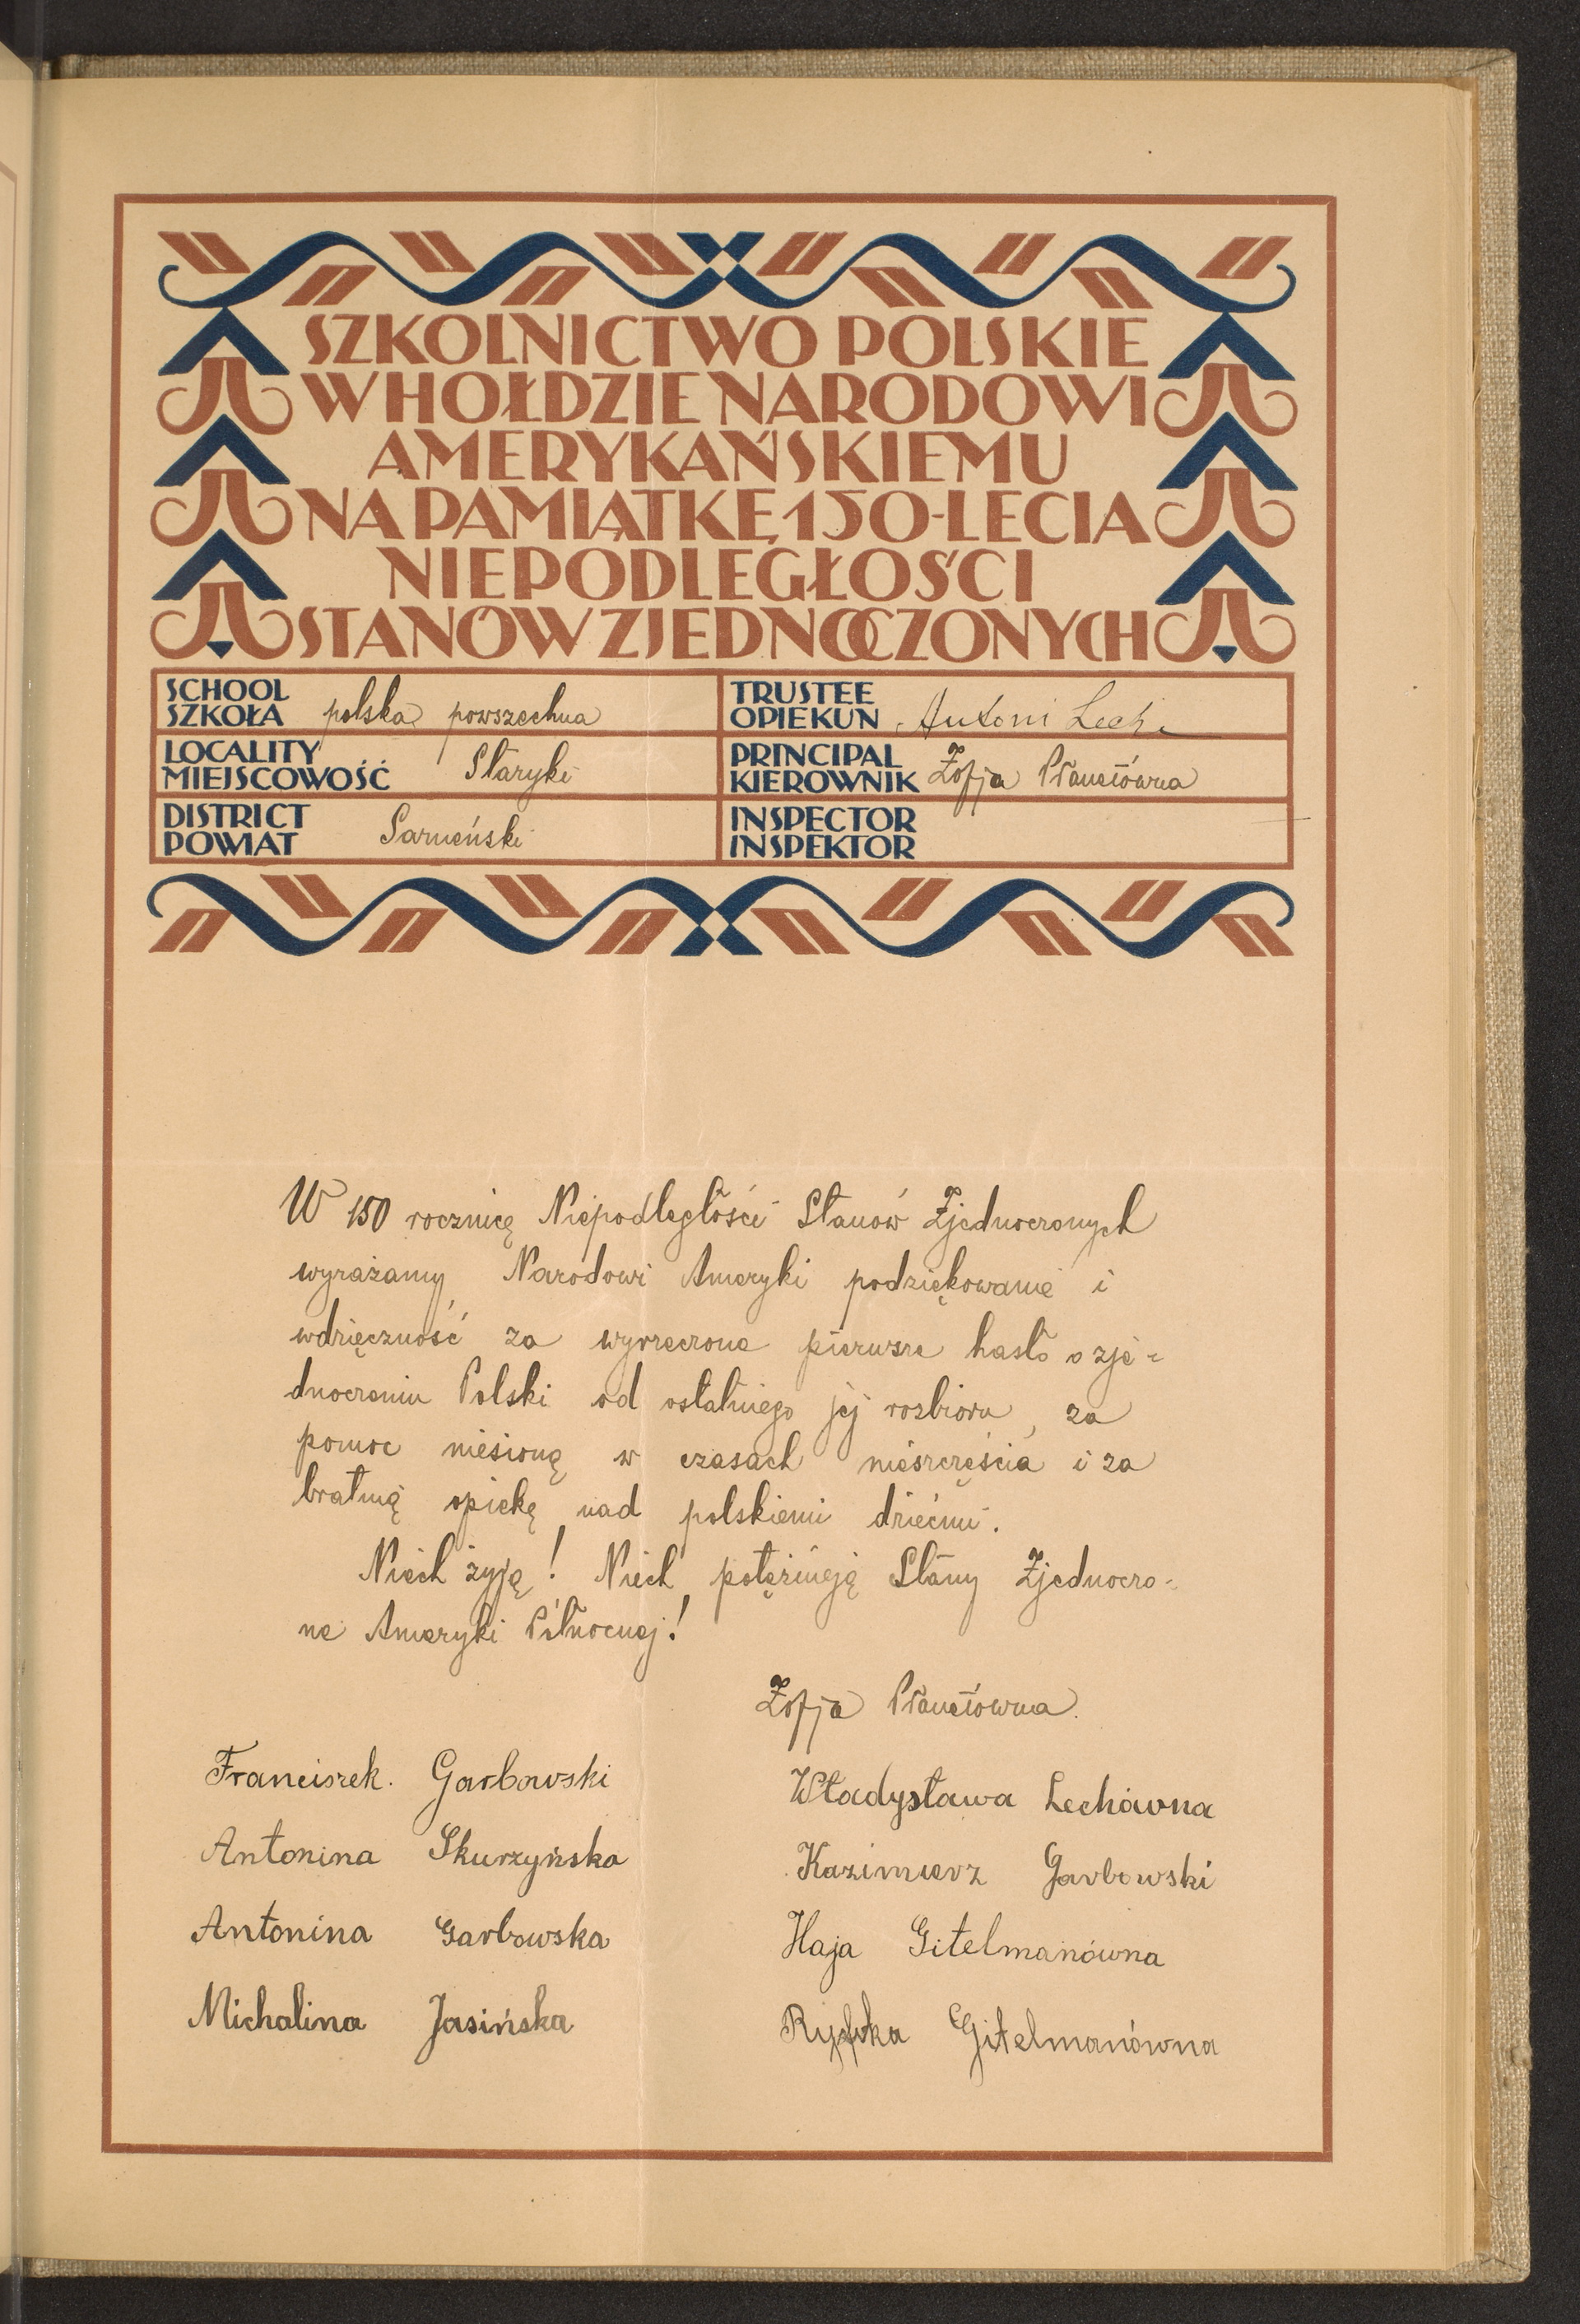 SZKOLNICTWO POLSKIE
W HOŁDZIE NARODOWI
AMERYKAŃSKIEMU
NA PAMIĄTKĘ 150-LECIA
NIEPODLEGŁOŚCI
STANÓW ZJEDNOCZONYCH
SCHOOL
SZKOŁA polska powszechna
TRUSTEE
OPIEKUN Antoni Lech
LOCALITY
MIEJSCOWOŚĆ Staryki
PRINCIPAL
KIEROWNIK Zofja
DISTRICT
POWIAT Sarneński
INSPECTOR
INSPEKTOR
W 150 rocznicę Niepodległości Stanów Zjednoczonych
wyrażamy Narodowi Ameryki podziękowanie i
wdzięczność za wyrzeczone pierwsze hasło o zje-
dnoczeniu Polski od ostatniego jej rozbioru, za
pomoc niesioną w czasach nieszczęścia i za
bratnią opiekę nad polskiemi dziećmi.
Niech żyją! Niech potężnieją Stany Zjednoczo-
ne Ameryki Północnej!
Zofja
Franciszek. Garbowski
Władysława Lechówna
Antonina Skurzyńska
Kazimierz Garbowski
Antonina Garbowska
Haja Gitelmanówna
Michalina Jasińska
Gitelmanówna